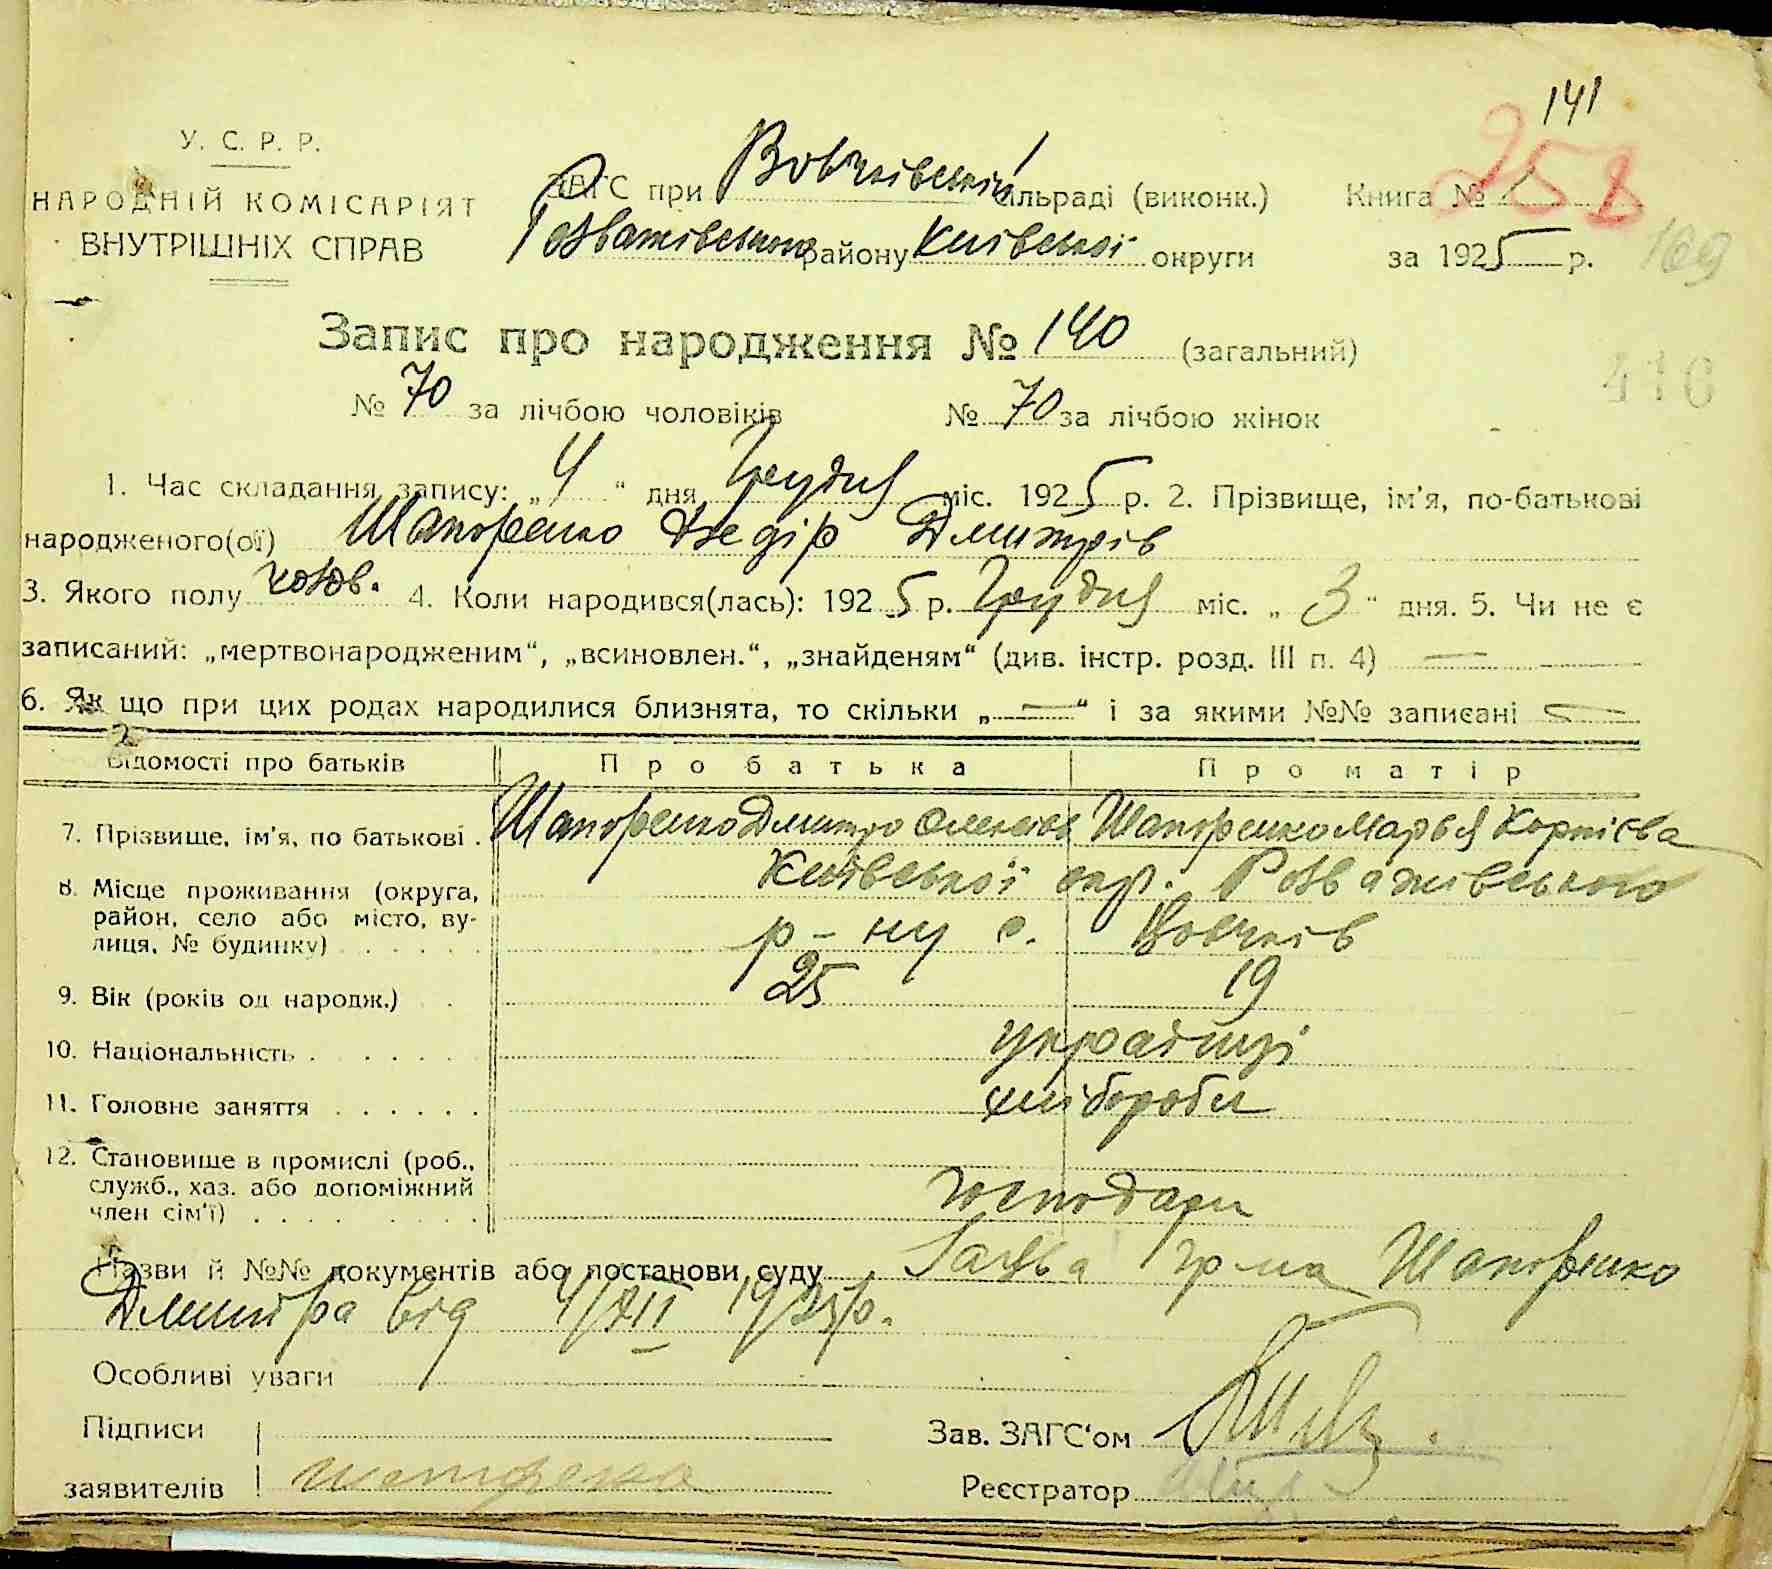 141
У. С. Р. Р.
НАРОДНІЙ КОМІСАРІЯТ
ВНУТРІШНІХ СПРАВ
ЗАГС при Вовчківській сільраді (виконк.) Книга № 1
258
Розважівського району Київської округи за 1925 р.
169
Запис про народження № 140 (загальний)
416
№ 70 за лічбою чоловіків № 70 за лічбою жінок
1. Час складання запису: „4“ дня Грудня міс. 1925 р. 2. Прізвище, ім'я, по-батькові
народженого(ої) Шапоренко Федір Дмитрів
3. Якого полу чолов. 4. Коли народився(лась): 1925 р. Грудня міс. „3“ дня. 5. Чи не є
записаний: „мертвонародженим“, „всиновлен.“, „знайденям“ (див. інстр. розд. III п. 4) —
6. Як що при цих родах народилися близнята, то скільки „—“ і за якими №№ записані —
Відомості про батьків Про батька Про матір
7. Прізвище, ім'я, по батькові . Шапоренко Дмитро Олексієв Шапоренко Марья Корнієва
8. Місце проживання (округа, Київської окр. Розважівського
район, село або місто, ву-
лиця, № будинку) . . . . . р-ну с. Вовчків
9. Вік (років од народж.) . . 25 19
10. Національність . . . . . . українці
11. Головне заняття . . . . . . хлібороби
12. Становище в промислі (роб.,
служб., хаз. або допоміжний
член сім'ї) . . . . . . . . господари
Назви й №№ документів або постанови суду Заява гр-на Шапоренко
Дмитра від 4/XII 1925 р.
Особливі уваги
Підписи
Зав. ЗАГС'ом
заявителів
Реєстратор